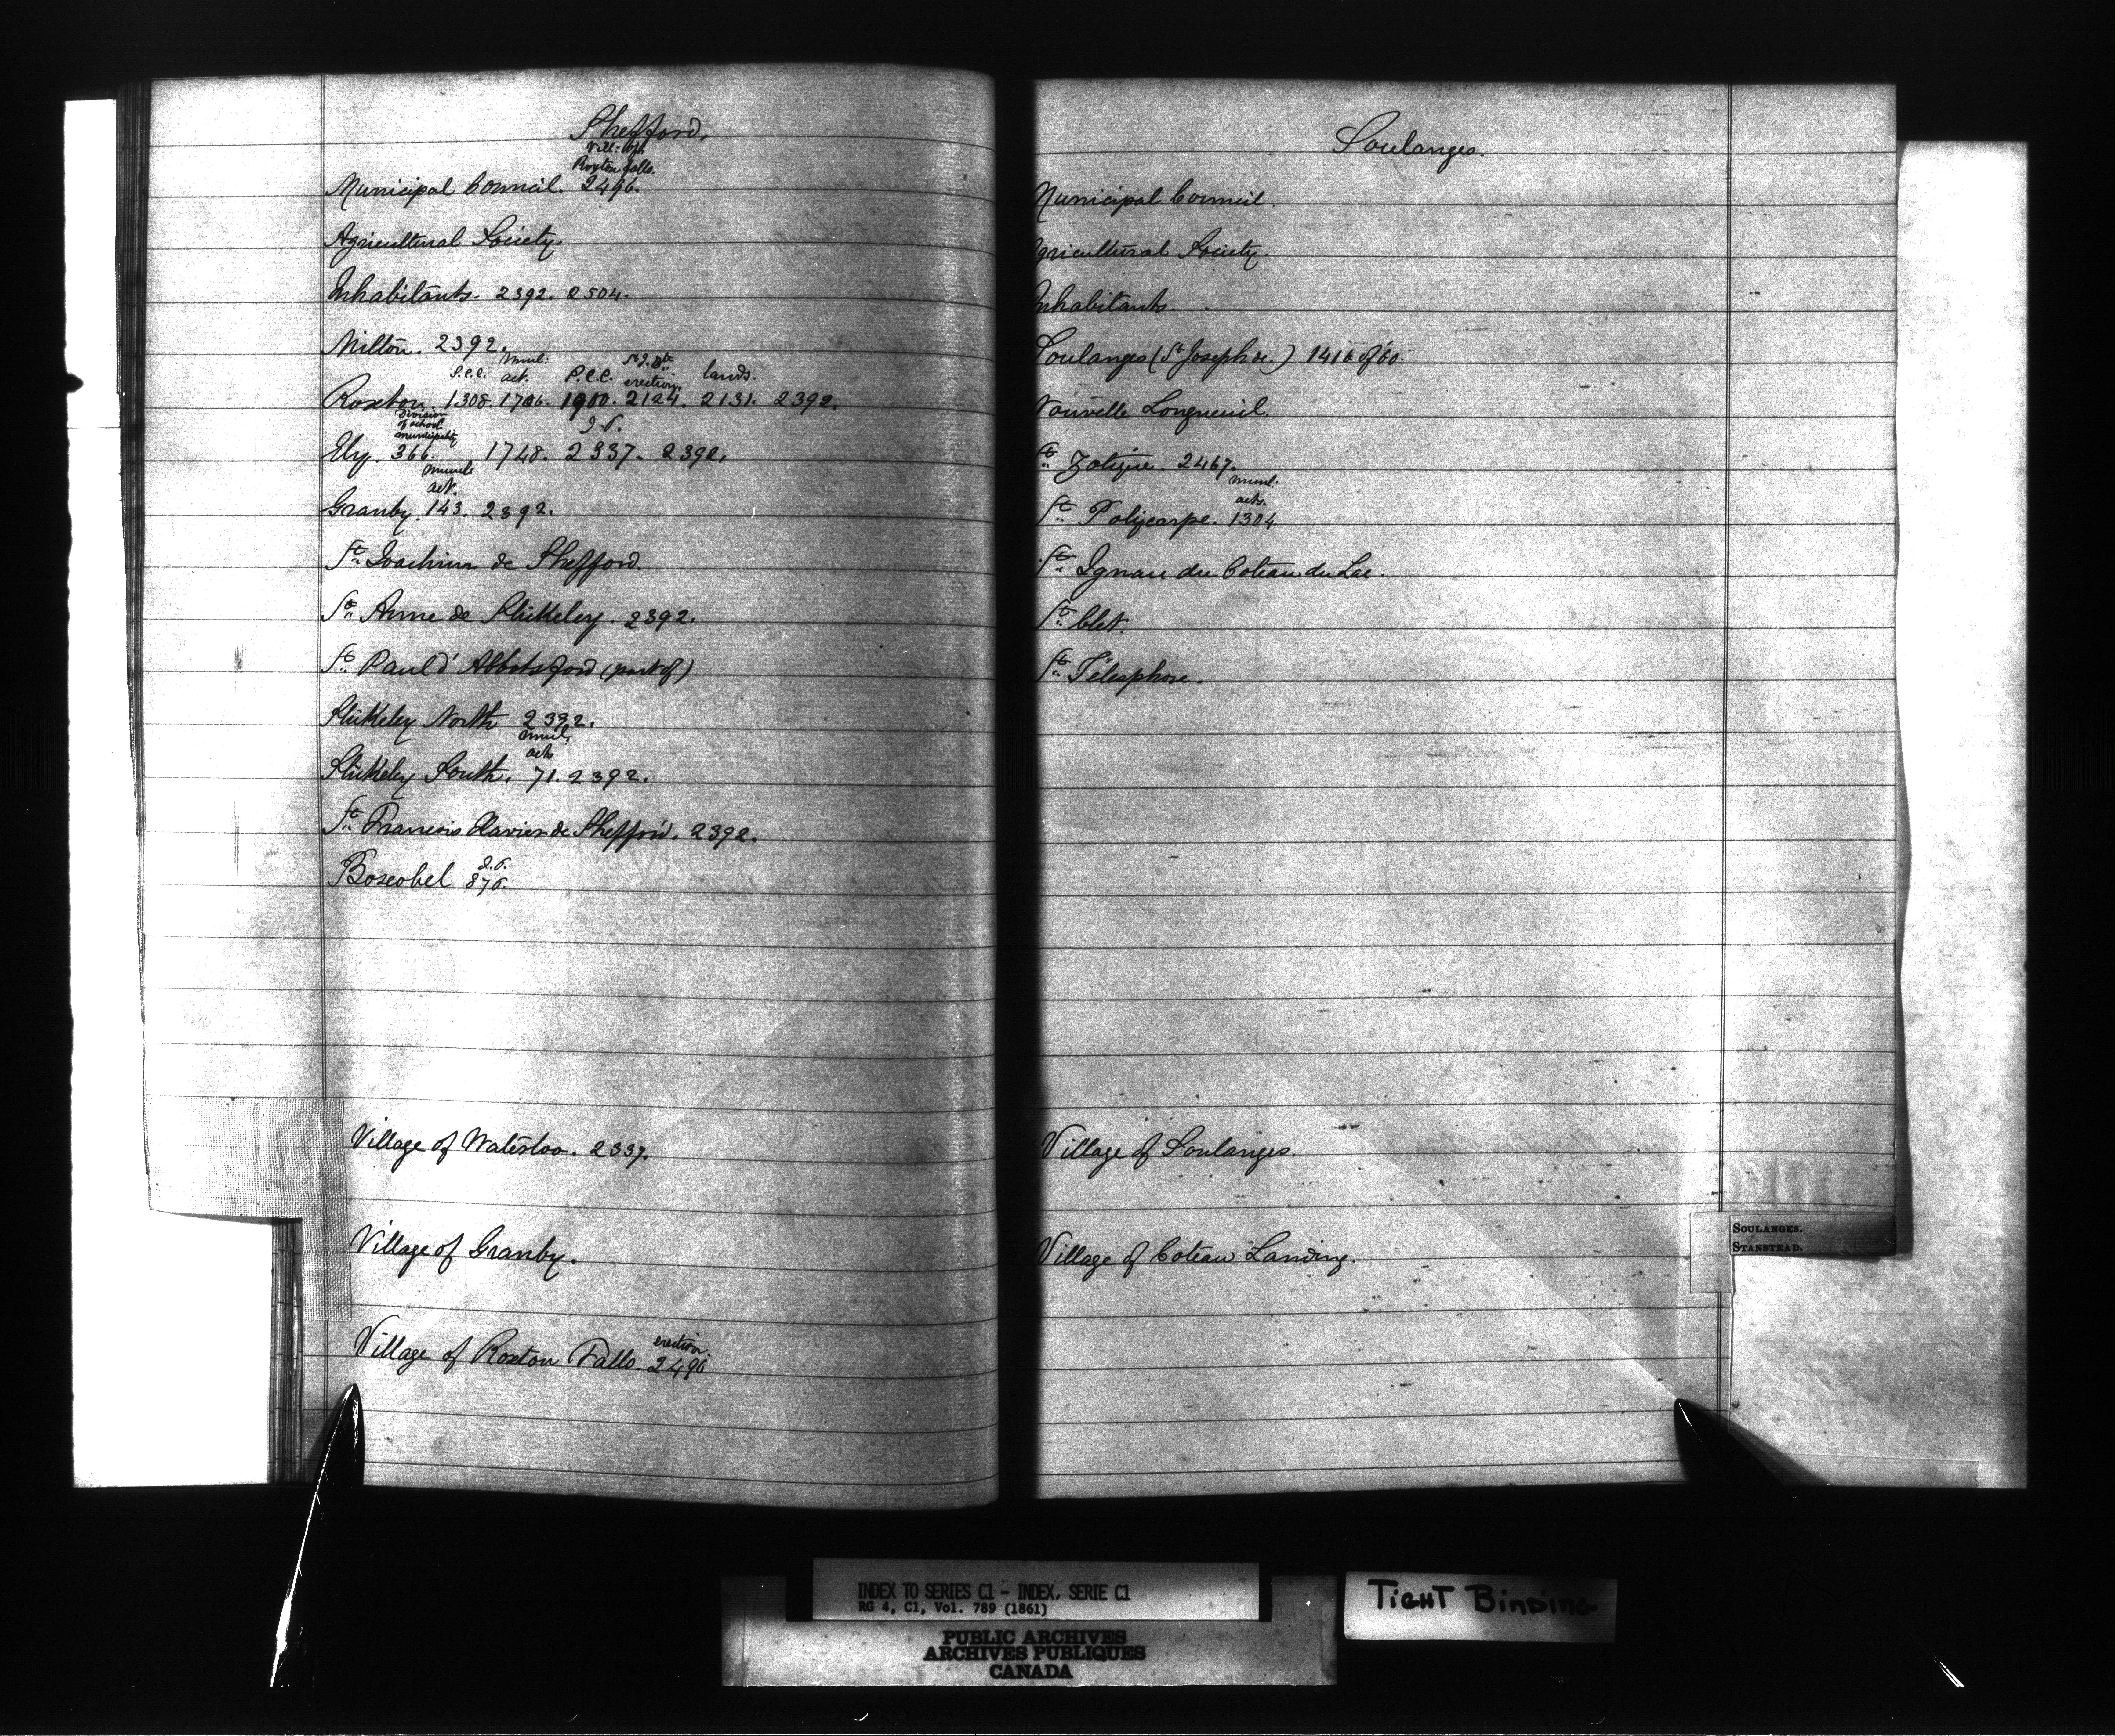 Shefford.
Vill: of
Roxton Falls.
Municipal Council. 2496.
Agricultural Society.
Inhabitants. 2392. 2504.
Milton. 2392.
P.C.C. Munl: act. P.C.C. erection. lands.
Roxton. 1308. 1706. 1900. 2124. 2131. 2392.
Division
of school
municipality
Ely. 366. 1748. 2337. 2392.
Munl
act.
Granby. 143. 2392.
St. Joachim de Shefford.
St. Anne de Stukeley. 2392.
St. Paul d'Abbotsford (part of)
Stukeley North 2392.
munl.
acts
Stukeley South. 71. 2392.
St. Francois Xavier de Shefford. 2392.
Boscobel 876.
Village of Waterloo. 2337.
Village of Granby.
erection.
Village of Roxton Falls. 2496
Soulanges.
Municipal Council.
Agricultural Society.
Inhabitants.
Soulanges (St. Joseph de.) 1416 of 60.
Nouvelle Longueuil.
St. Zotique. 2467.
munl.
acts.
St. Polycarpe. 1304
St. Ignace du Coteau du Lac.
St. Clet.
St. Télesphore.
Village of Soulanges.
Village of Coteau Landing.
SOULANGES.
STANSTEAD.
INDEX TO SERIES C1 - INDEX, SERIE C1
RG 4, C1, Vol. 789 (1861)
PUBLIC ARCHIVES
ARCHIVES PUBLIQUES
CANADA
TIGHT BINDING